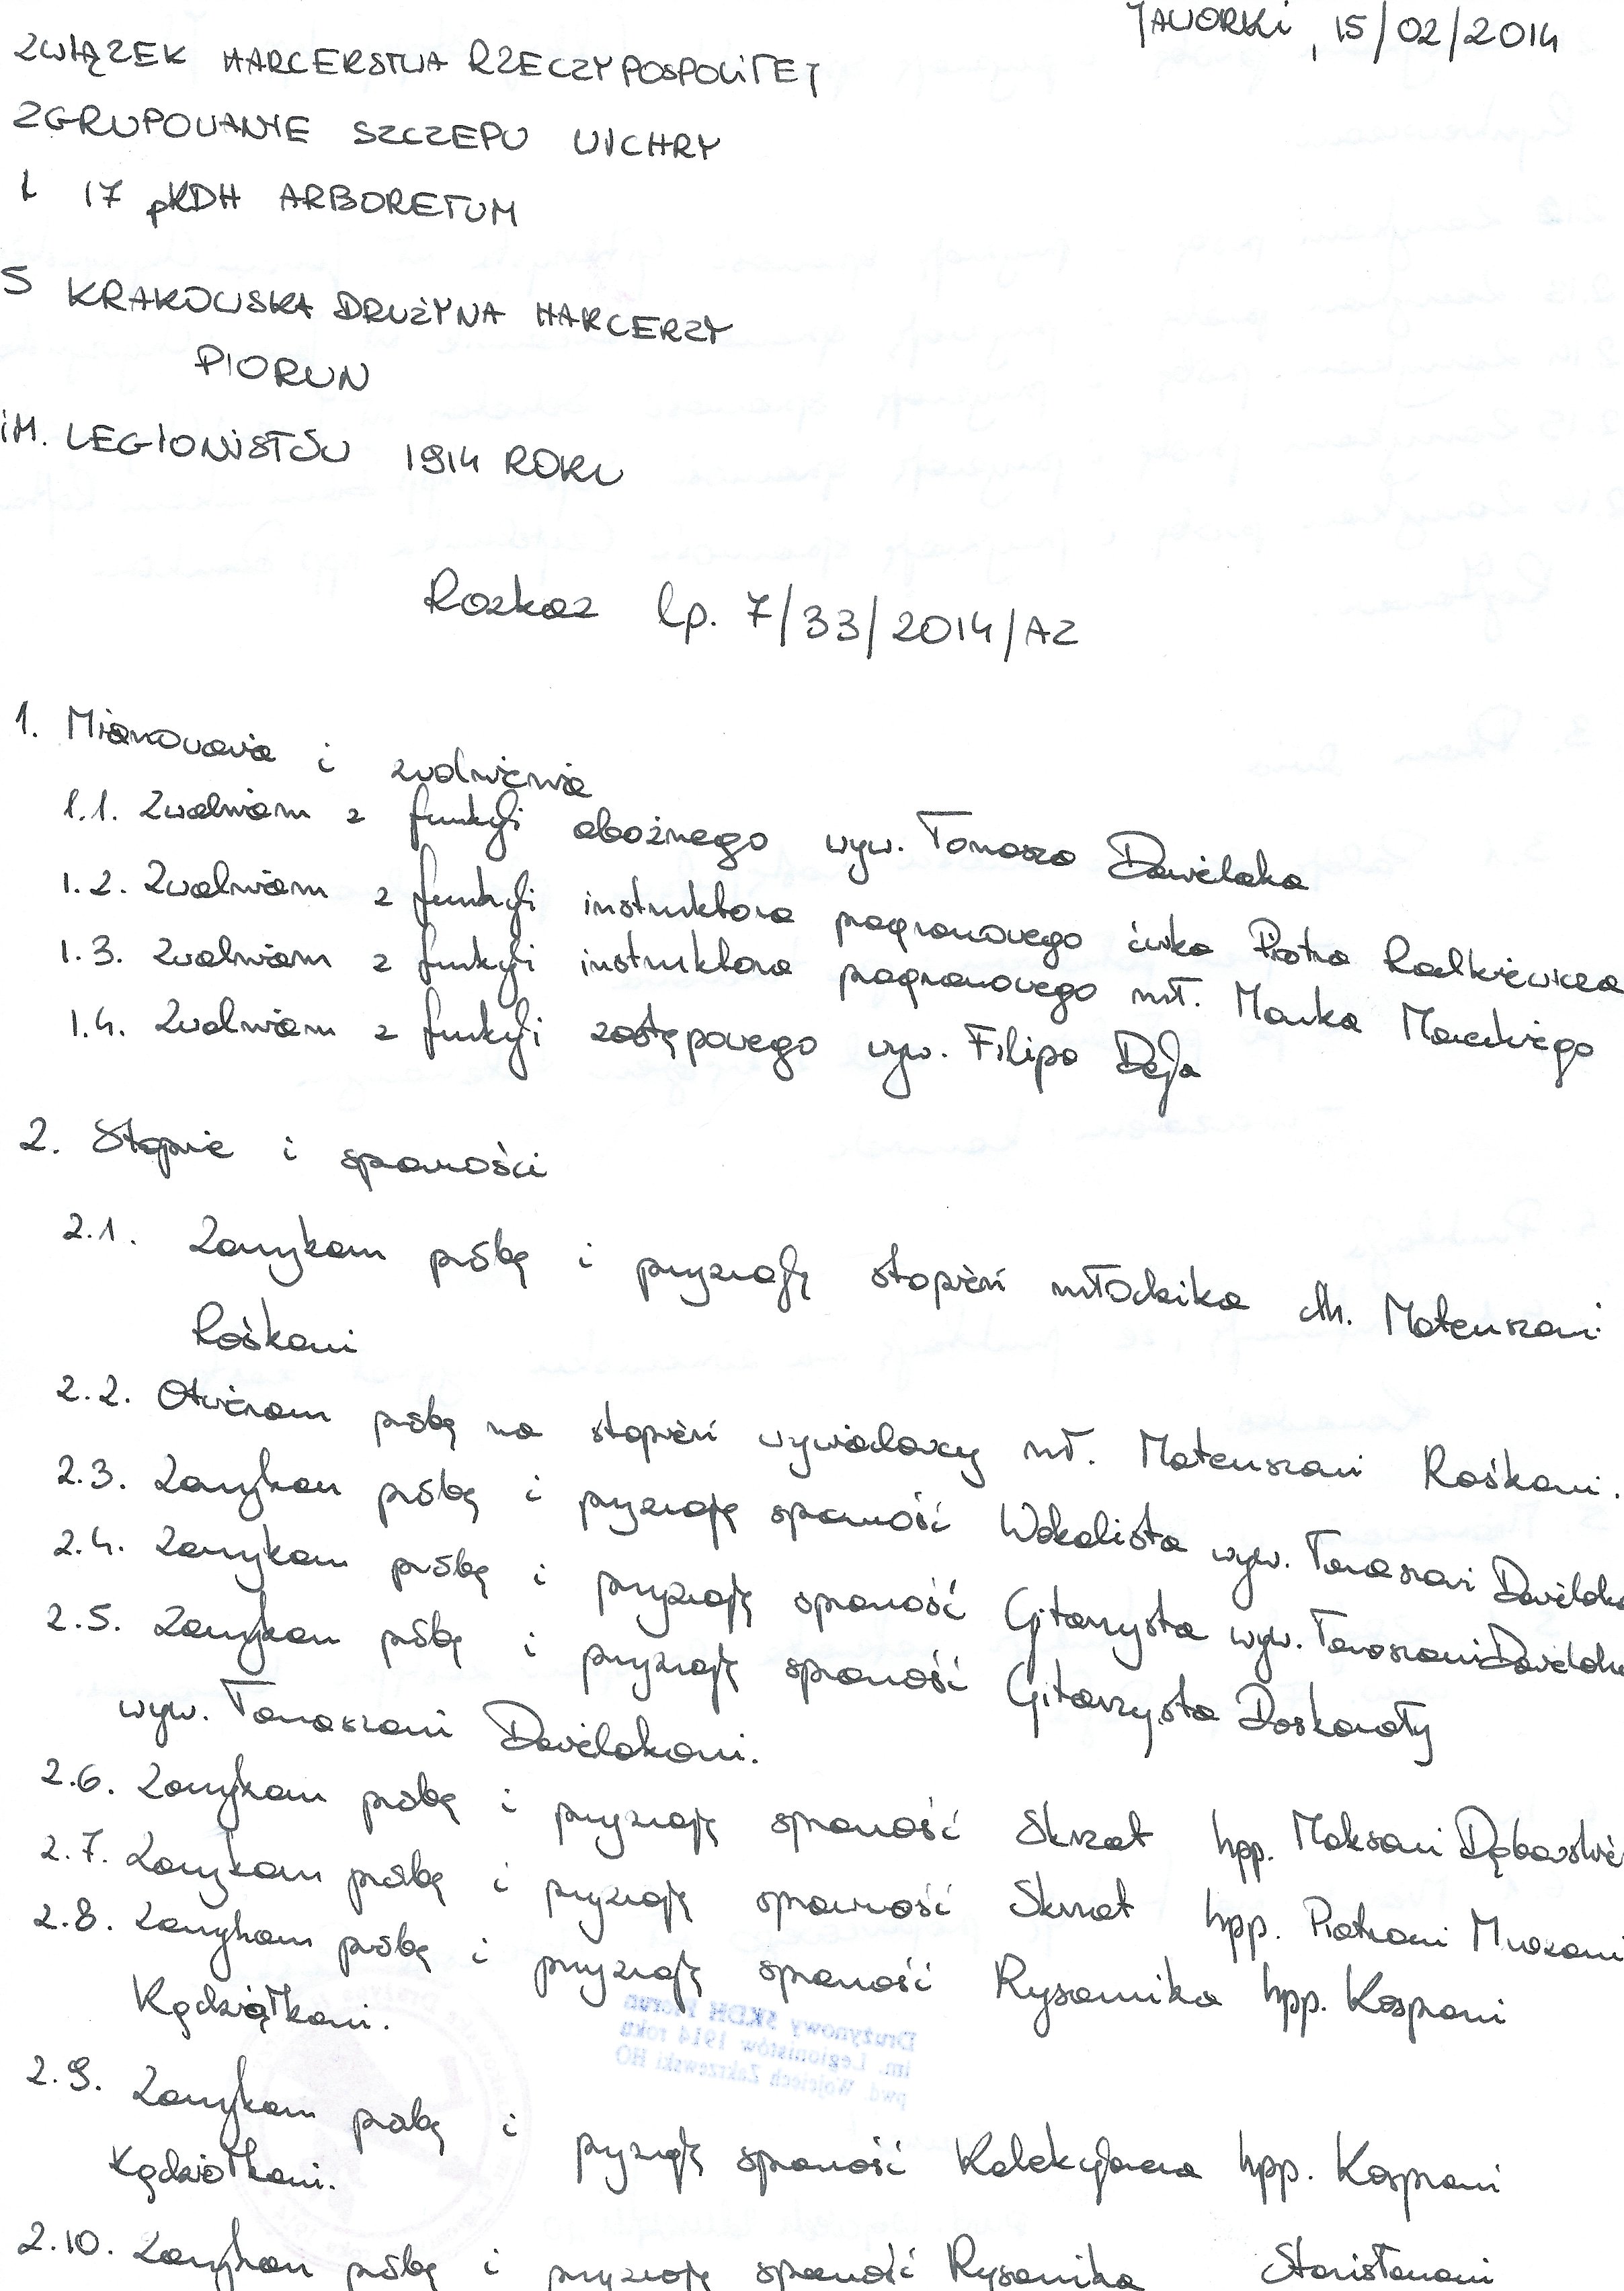 JAWORKI, 15/02/2014
ZWIĄZEK HARCERSTWA RZECZYPOSPOLITEJ
ZGRUPOWANIE SZCZEPU WICHRY
I 17 pKDH ARBORETUM
5 KRAKOWSKA DRUŻYNA HARCERZY
PIORUN
IM. LEGIONISTÓW 1914 ROKU
Rozkaz lp. 7/33/2014/AZ
1. Mianowania i zwolnienia
1.1. Zwalniam z funkcji oboźnego wyw. Tomasza Dawidaka
1.2. Zwalniam z funkcji instruktora programowego ćwika Piotra Radkiewicza
1.3. Zwalniam z funkcji instruktora programowego mł. Marka Mareckiego
1.4. Zwalniam z funkcji zastępowego wyw. Filipa Deja
2. Stopnie i sprawności
2.1. Zamykam próbę i przyznaję stopień młodzika dh. Mateuszowi
Rośkowi
2.2. Otwieram próbę na stopień wywiadowcy mł. Mateuszowi Rośkowi.
2.3. Zamykam próbę i przyznaję sprawność Wokalista wyw. Tomaszowi Dawidako
2.4. Zamykam próbę i przyznaję sprawność Gitarzysta wyw. Tomaszowi Dawidako
2.5. Zamykam próbę i przyznaję sprawność Gitarzysta Doskonały
wyw. Tomaszowi Dawidakowi.
2.6. Zamykam próbę i przyznaję sprawność Skrzat hpp. Maksowi Dąbrowskie
2.7. Zamykam próbę i przyznaję sprawność Skrzat hpp. Piotrowi Mrozowi
2.8. Zamykam próbę i przyznaję sprawność Rysownika hpp. Kasprowi
Kądziołkowi.
Drużynowy 5KDH Piorun
im. Legionistów 1914 roku
pwd. Wojciech Zakrzewski HO
2.9. Zamykam próbę i przyznaję sprawność Kolekcjonera hpp. Kasprowi
Kądziołkowi.
2.10. Zamykam próbę i przyznaję sprawność Rysownika Stanisławowi